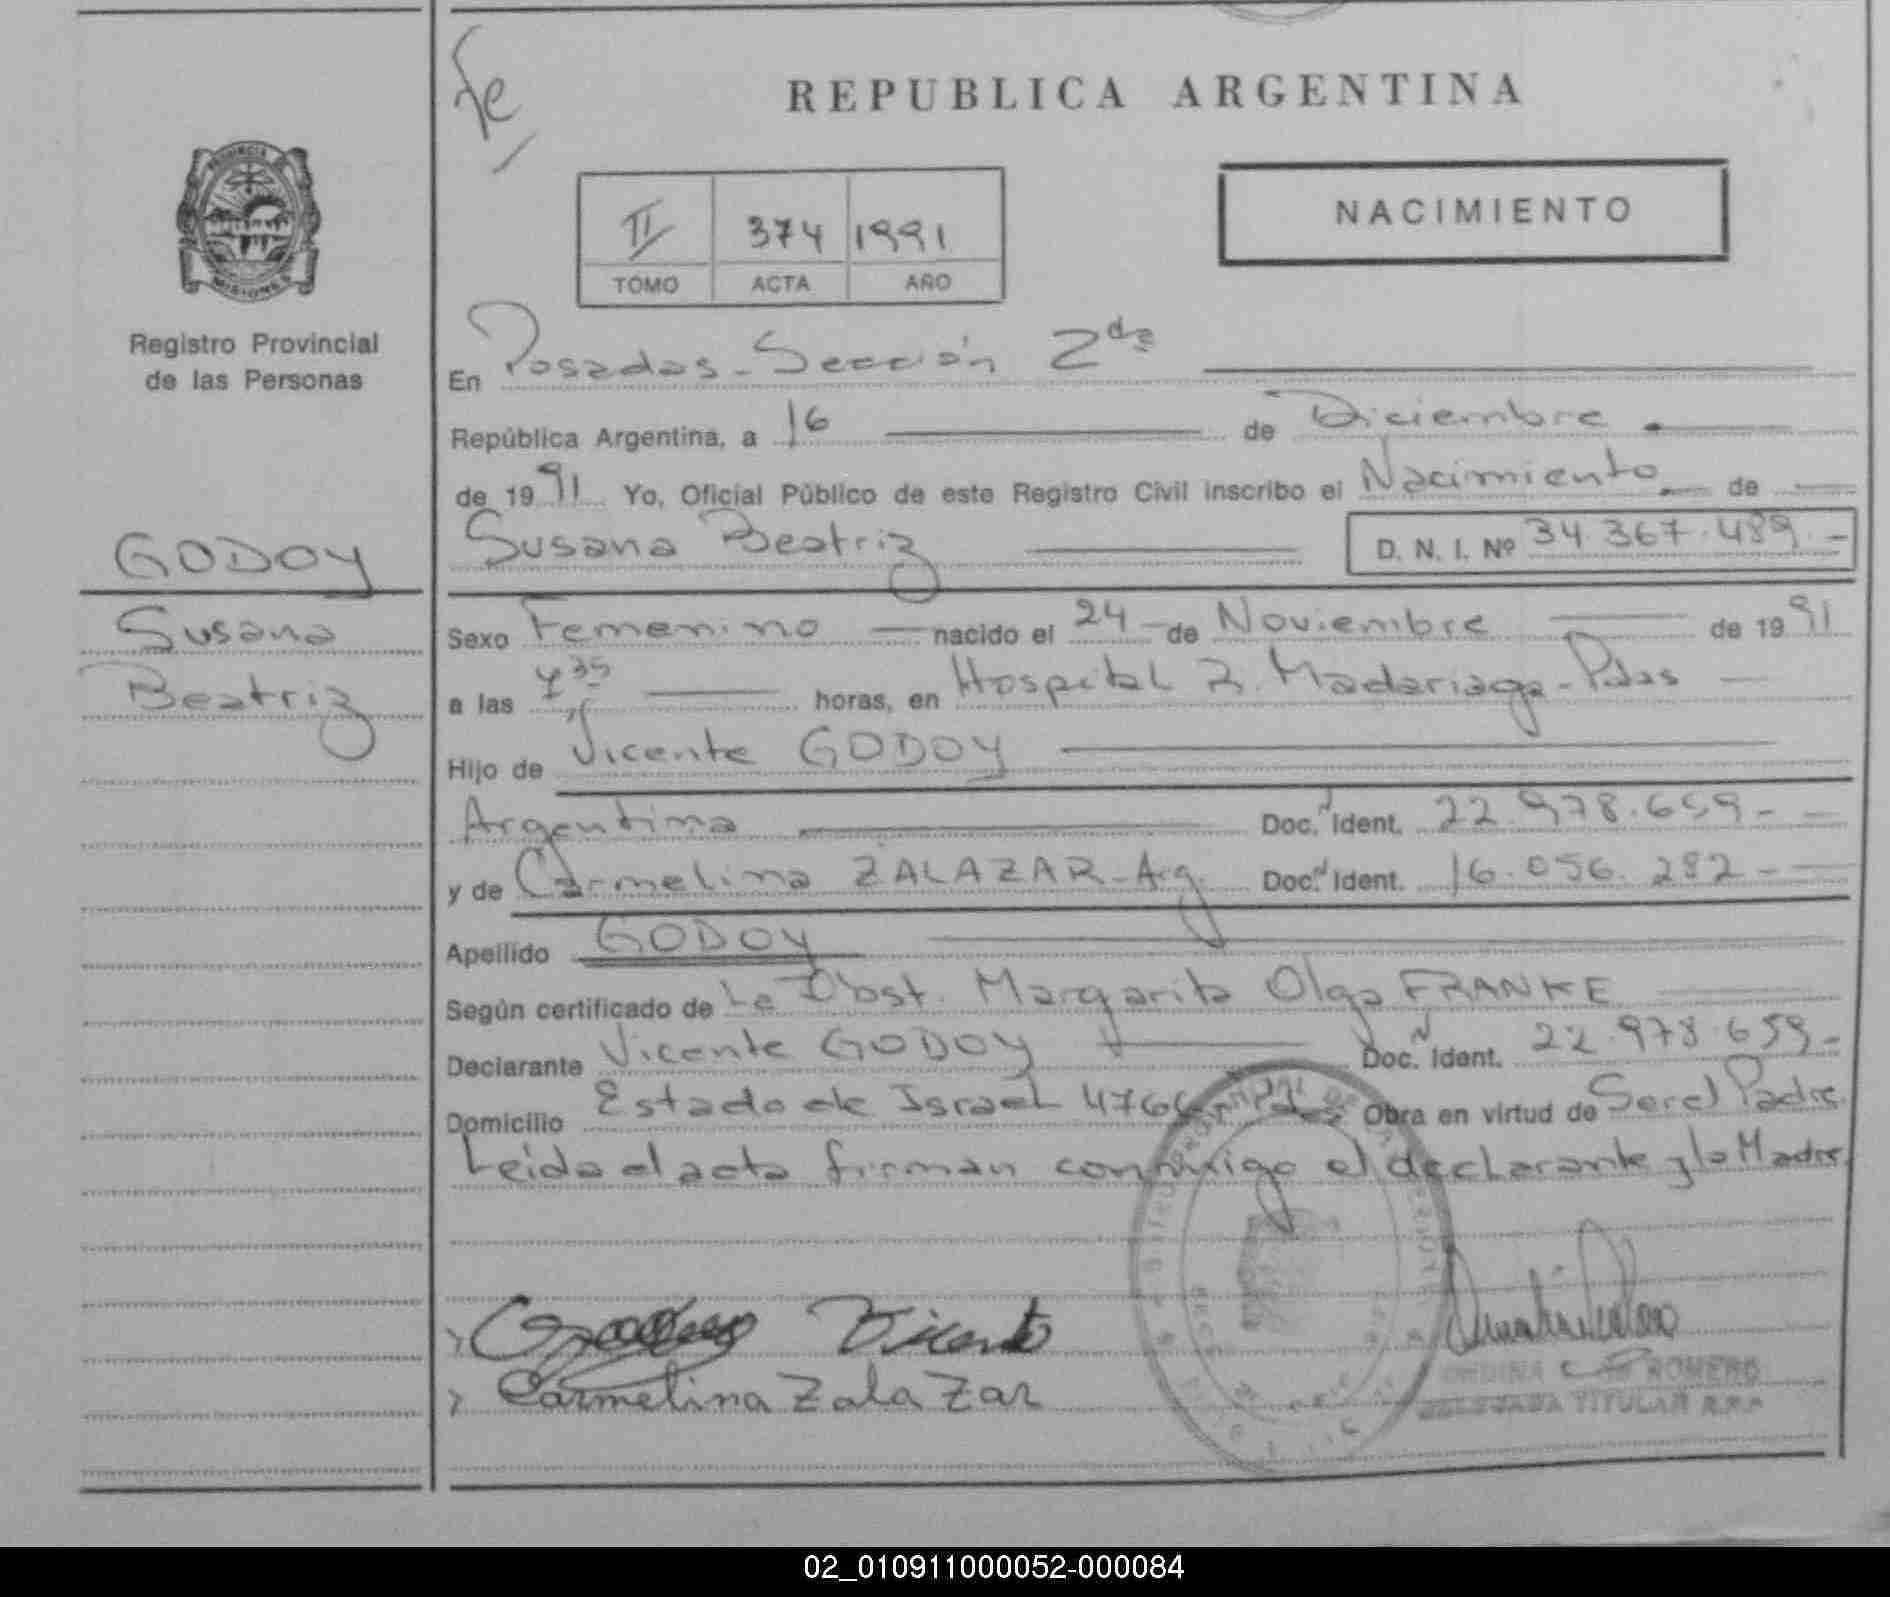 Fe
REPUBLICA ARGENTINA
PROVINCIA DE
MISIONES
Registro Provincial
de las Personas
NACIMIENTO
II 374 1991
TOMO ACTA AÑO
En Posadas - Sección 2da
República Argentina, a 16 de Diciembre
de 1991 Yo, Oficial Público de este Registro Civil inscribo el Nacimiento de
Susana Beatriz D. N. I. Nº 34.367.489.-
GODOY
Susana
Beatriz
Sexo Femenino nacido el 24 de Noviembre de 1991
a las 4,35 horas, en Hospital R. Madariaga - Pdas
Hijo de Vicente GODOY
Argentino Doc.N Ident. 22.978.659-
y de Carmelina ZALAZAR - Arg. Doc.N Ident. 16.056.282-
Apellido GODOY
Según certificado de La Obst. Margarita Olga FRANKE
Declarante Vicente GODOY Doc.N Ident. 22.978.659-
Domicilio Estado de Israel 4766 Pdas Obra en virtud de Ser el Padre.
Leida el acta firman conmigo el declarante y la Madre
Godoy Vicente
Carmelina Zalazar
ROMERO
DELEGADA TITULAR R.P.P
02_010911000052-000084